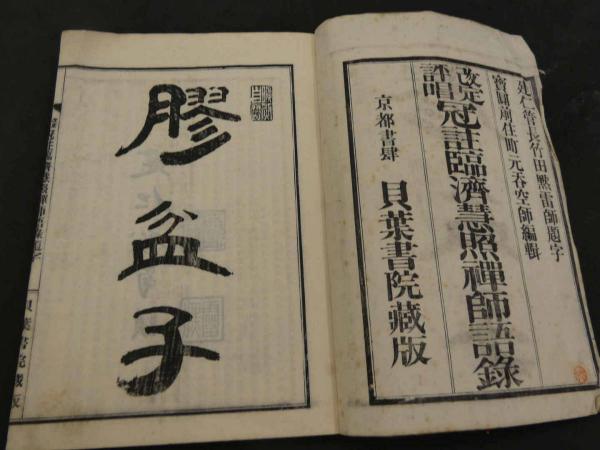 建仁管長竹田黙雷師題字
寶圓前住町元呑空師編輯
改定
評唱
冠註臨濟慧照禪師語錄
京都書肆 貝葉書院藏版
膠盆子
貝葉書院藏版